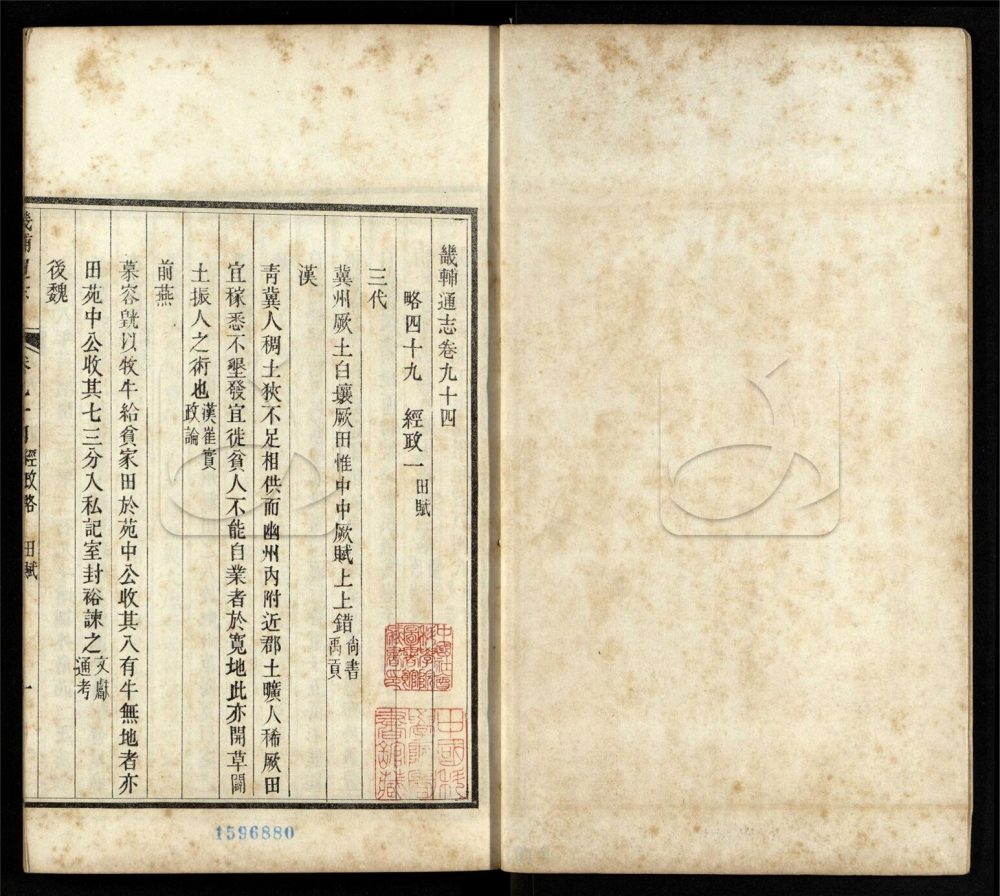 畿輔通志卷九十四
略四十九　經政一　田賦
三代
冀州厥土白壤厥田惟中中厥賦上上錯尚書禹貢
漢
青冀人稠土狹不足相供而幽州內附近郡土曠人稀厥田
宜稼悉不墾發宜徙貧人不能自業者於寬地此亦開草闢
土振人之術也漢崔寔政論
前燕
慕容皝以牧牛給貧家田於苑中公收其入有牛無地者亦
田苑中公收其七三分入私記室封裕諫之文獻通考
後魏
經政略　田賦　一
1596880